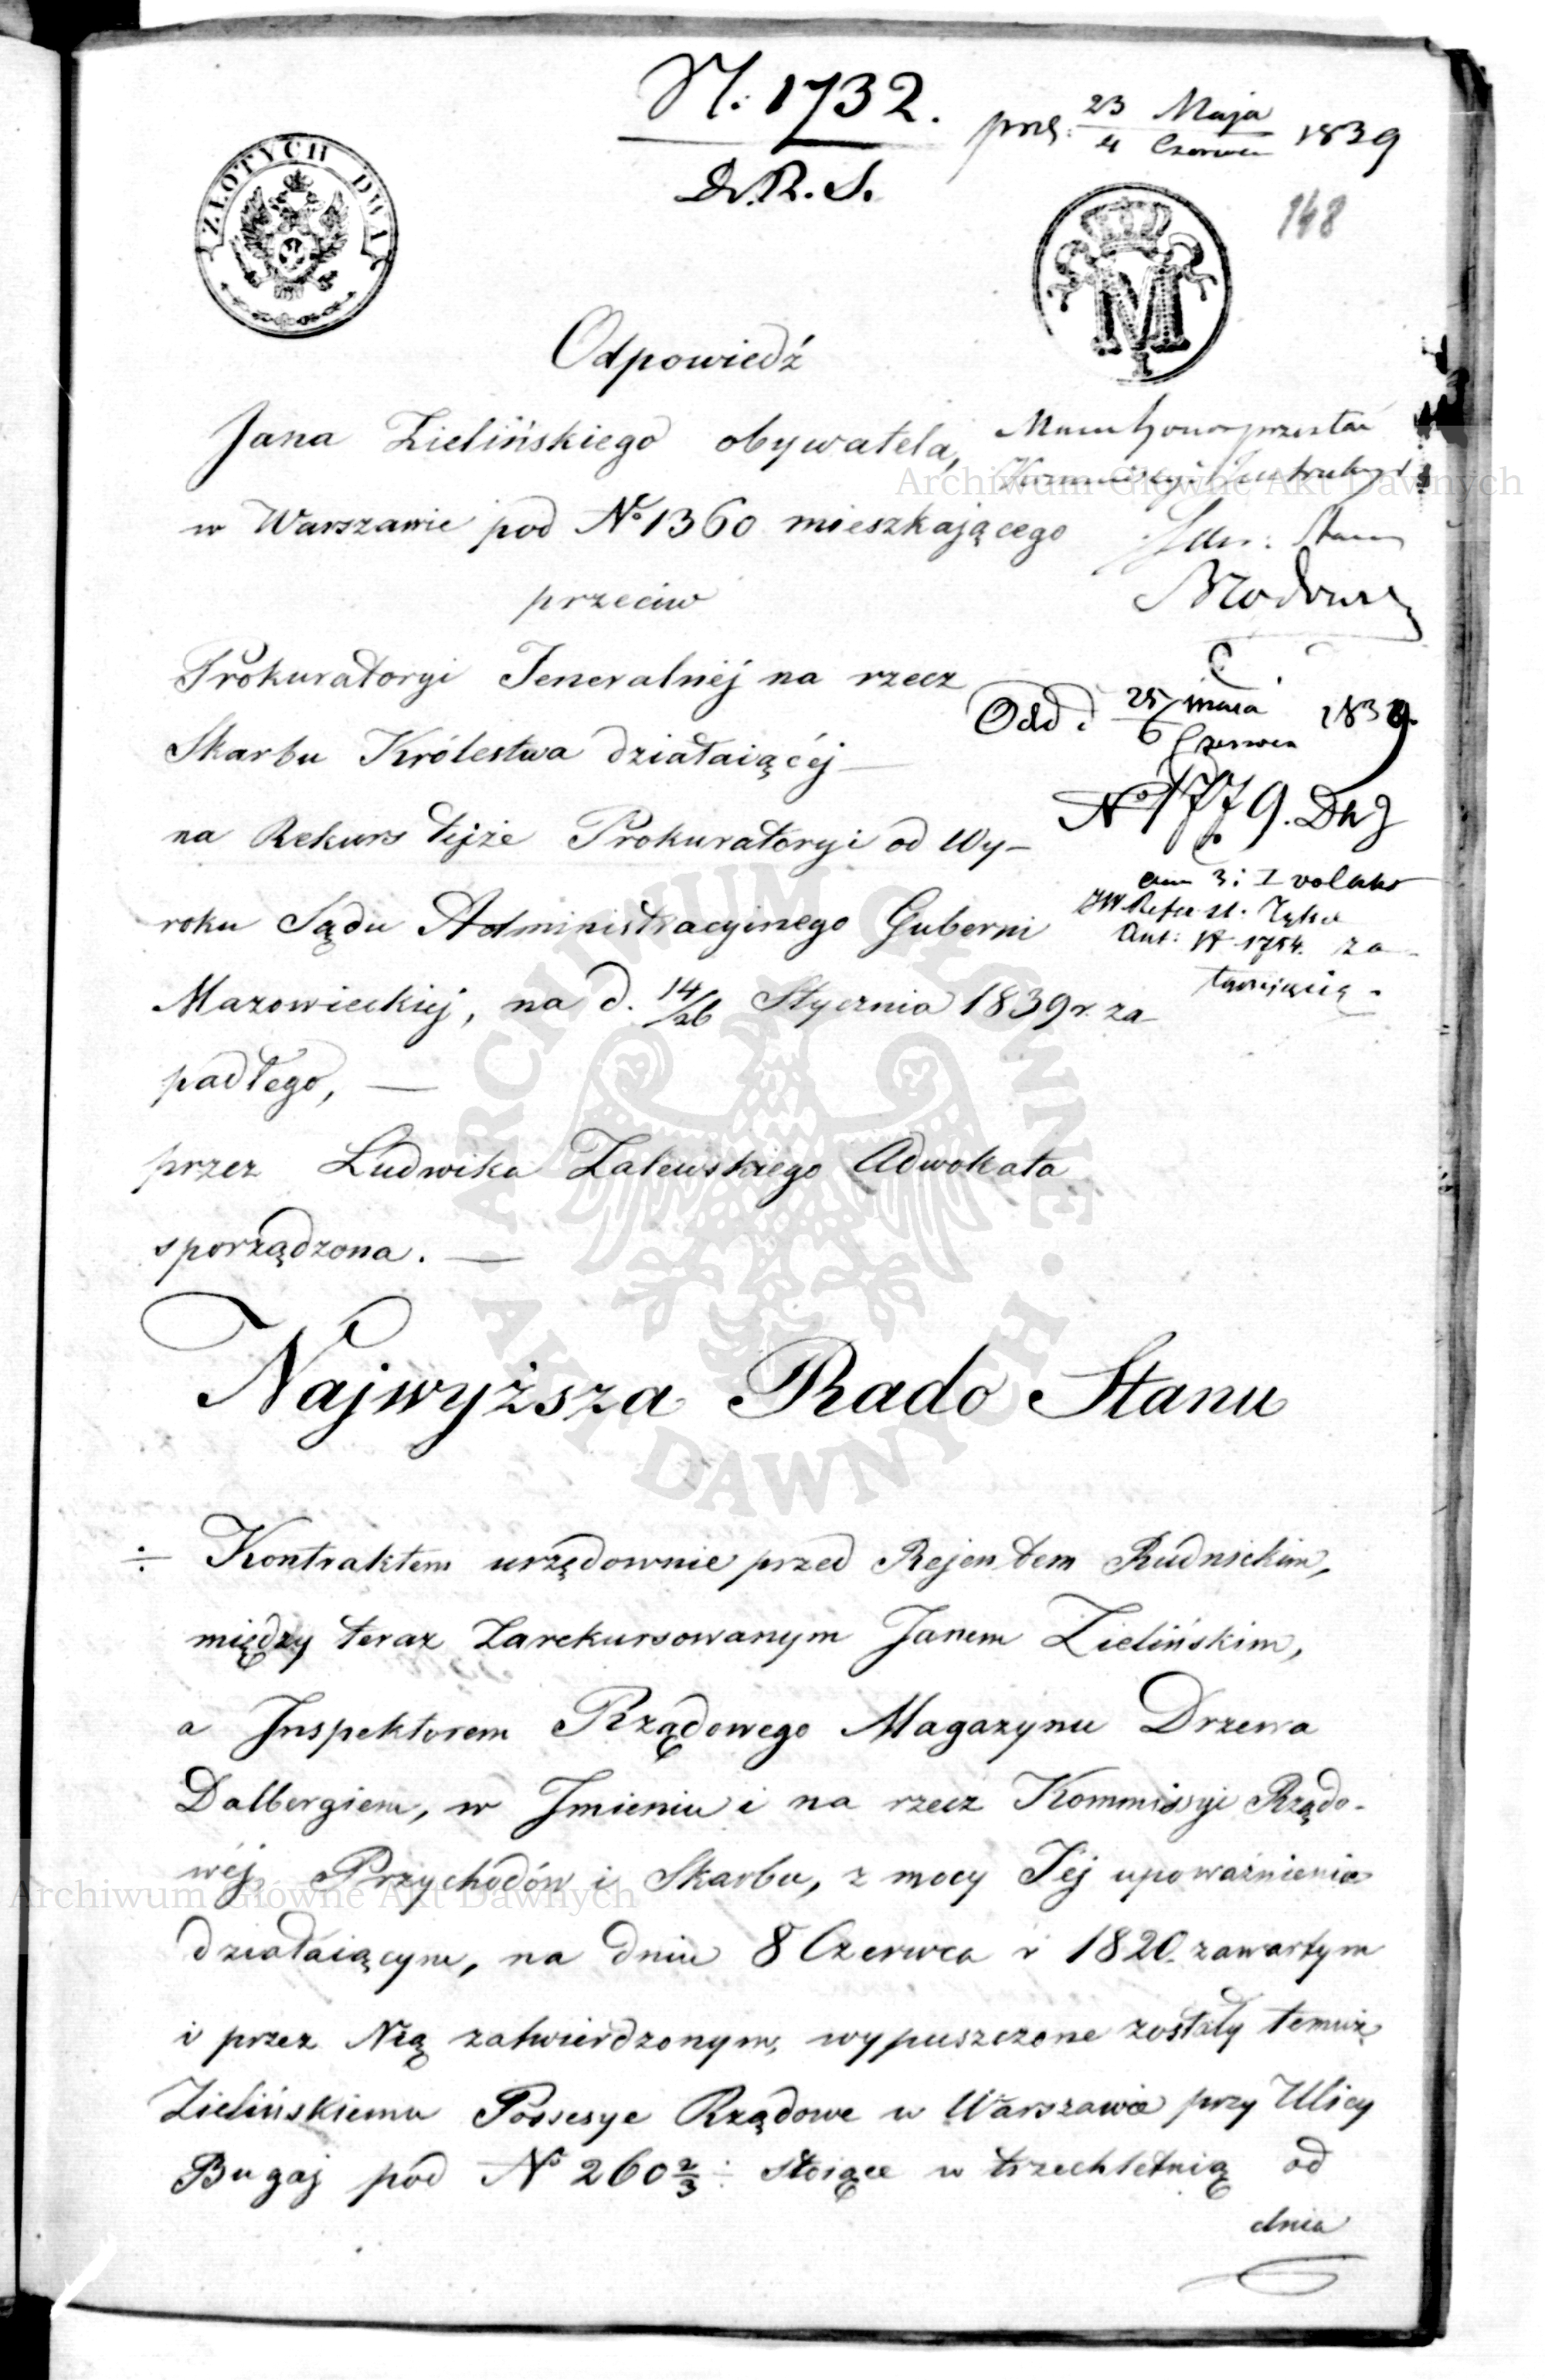 N. 1732.
D.R.S.
prez: 23 Maja 1839
4 Czerwca
148
ZŁOTYCH DWA
M
Odpowiedź
Jana Zielińskiego obywatela,
w Warszawie pod No 1360 mieszkającego
przeciw
Prokuratoryi Jeneralnéj na rzecz
Skarbu Królestwa działaiącéj —
na Rekurs tejże Prokuratoryi od Wy-
roku Sądu Administracyinego Guberni
Mazowieckiej, na d. 14/26 Stycznia 1839 r. za-
padłego, —
przez Ludwika Zalewskiego Adwokata
sporządzona. —
Sekr: Stanu
Odd: d 25 maia 1839
6 Czerwca
No 1779.
Ant: N 1754. za-
Najwyższa Rado Stanu
÷ Kontraktem urzędownie przed Rejentem Rudnickim,
między teraz zarekursowanym Janem Zielińskim,
a Inspektorem Rządowego Magazynu Drzewa
Dalbergiem, w Imieniu i na rzecz Kommissyi Rządo-
wéj Przychodów i Skarbu, z mocy Jéj upoważnienia
działaiącym, na dniu 8 Czerwca r 1820. zawartym
i przez Nią zatwierdzonym, wypuszczone zostały temuż
Zielińskiemu Possesye Rządowe w Warszawie przy Ulicy
Bugaj pod No 260 2/3 ÷ stoiące w trzechletnią od
dnia
ARCHIWUM GŁÓWNE AKT DAWNYCH
Archiwum Główne Akt Dawnych
Archiwum Główne Akt Dawnych